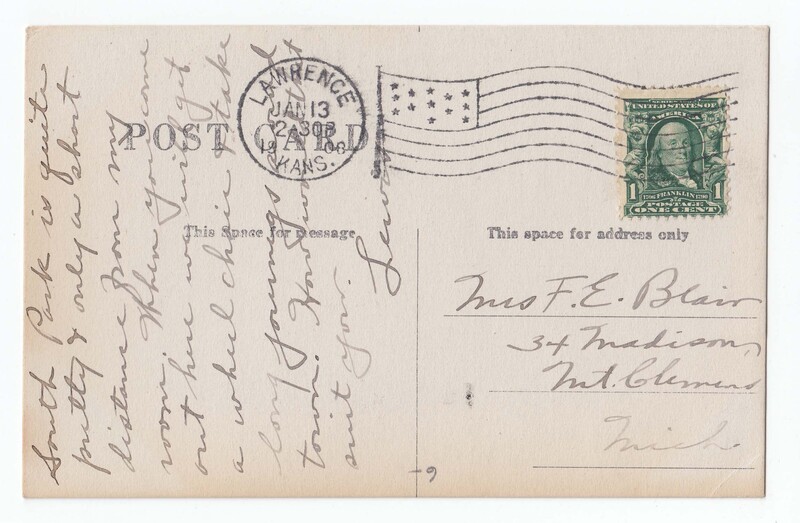 POST CARD
LAWRENCE
JAN 13
2-30P
19 08
KANS.
SERIES 1902
UNITED STATES OF
AMERICA
1 1
1706 FRANKLIN 1790
POSTAGE
ONE CENT
This Space for message
This space for address only
South Park is quite
pretty & only a short
distance from my
room. When you come
out here we will get
a wheel chair & take
long journeys
town. How would that
suit you.
Mrs F. E. Blair
34 Madison,
Mt. Clemens
Mich
-9